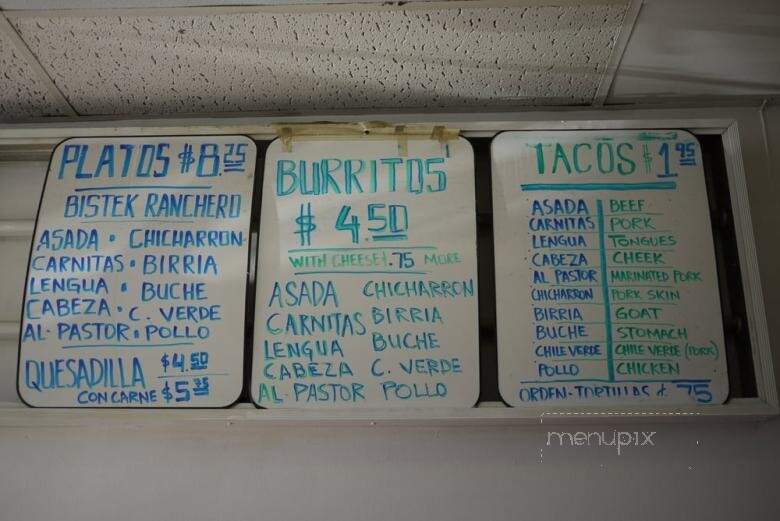 PLATOS $8.75
BISTEK RANCHERO
ASADA • CHICHARRON
CARNITAS • BIRRIA
LENGUA • BUCHE
CABEZA • C. VERDE
AL PASTOR • POLLO
QUESADILLA $4.50
CON CARNE $5.95
BURRITOS
$4.50
WITH CHEESE .75 MORE
ASADA CHICHARRON
CARNITAS BIRRIA
LENGUA BUCHE
CABEZA C. VERDE
AL PASTOR POLLO
TACOS $1.95
ASADA BEEF
CARNITAS PORK
LENGUA TONGUES
CABEZA CHEEK
AL PASTOR MARINATED PORK
CHICHARRON PORK SKIN
BIRRIA GOAT
BUCHE STOMACH
CHILE VERDE CHILE VERDE (PORK)
POLLO CHICKEN
ORDEN-TORTILLAS ¢ 75
menupix